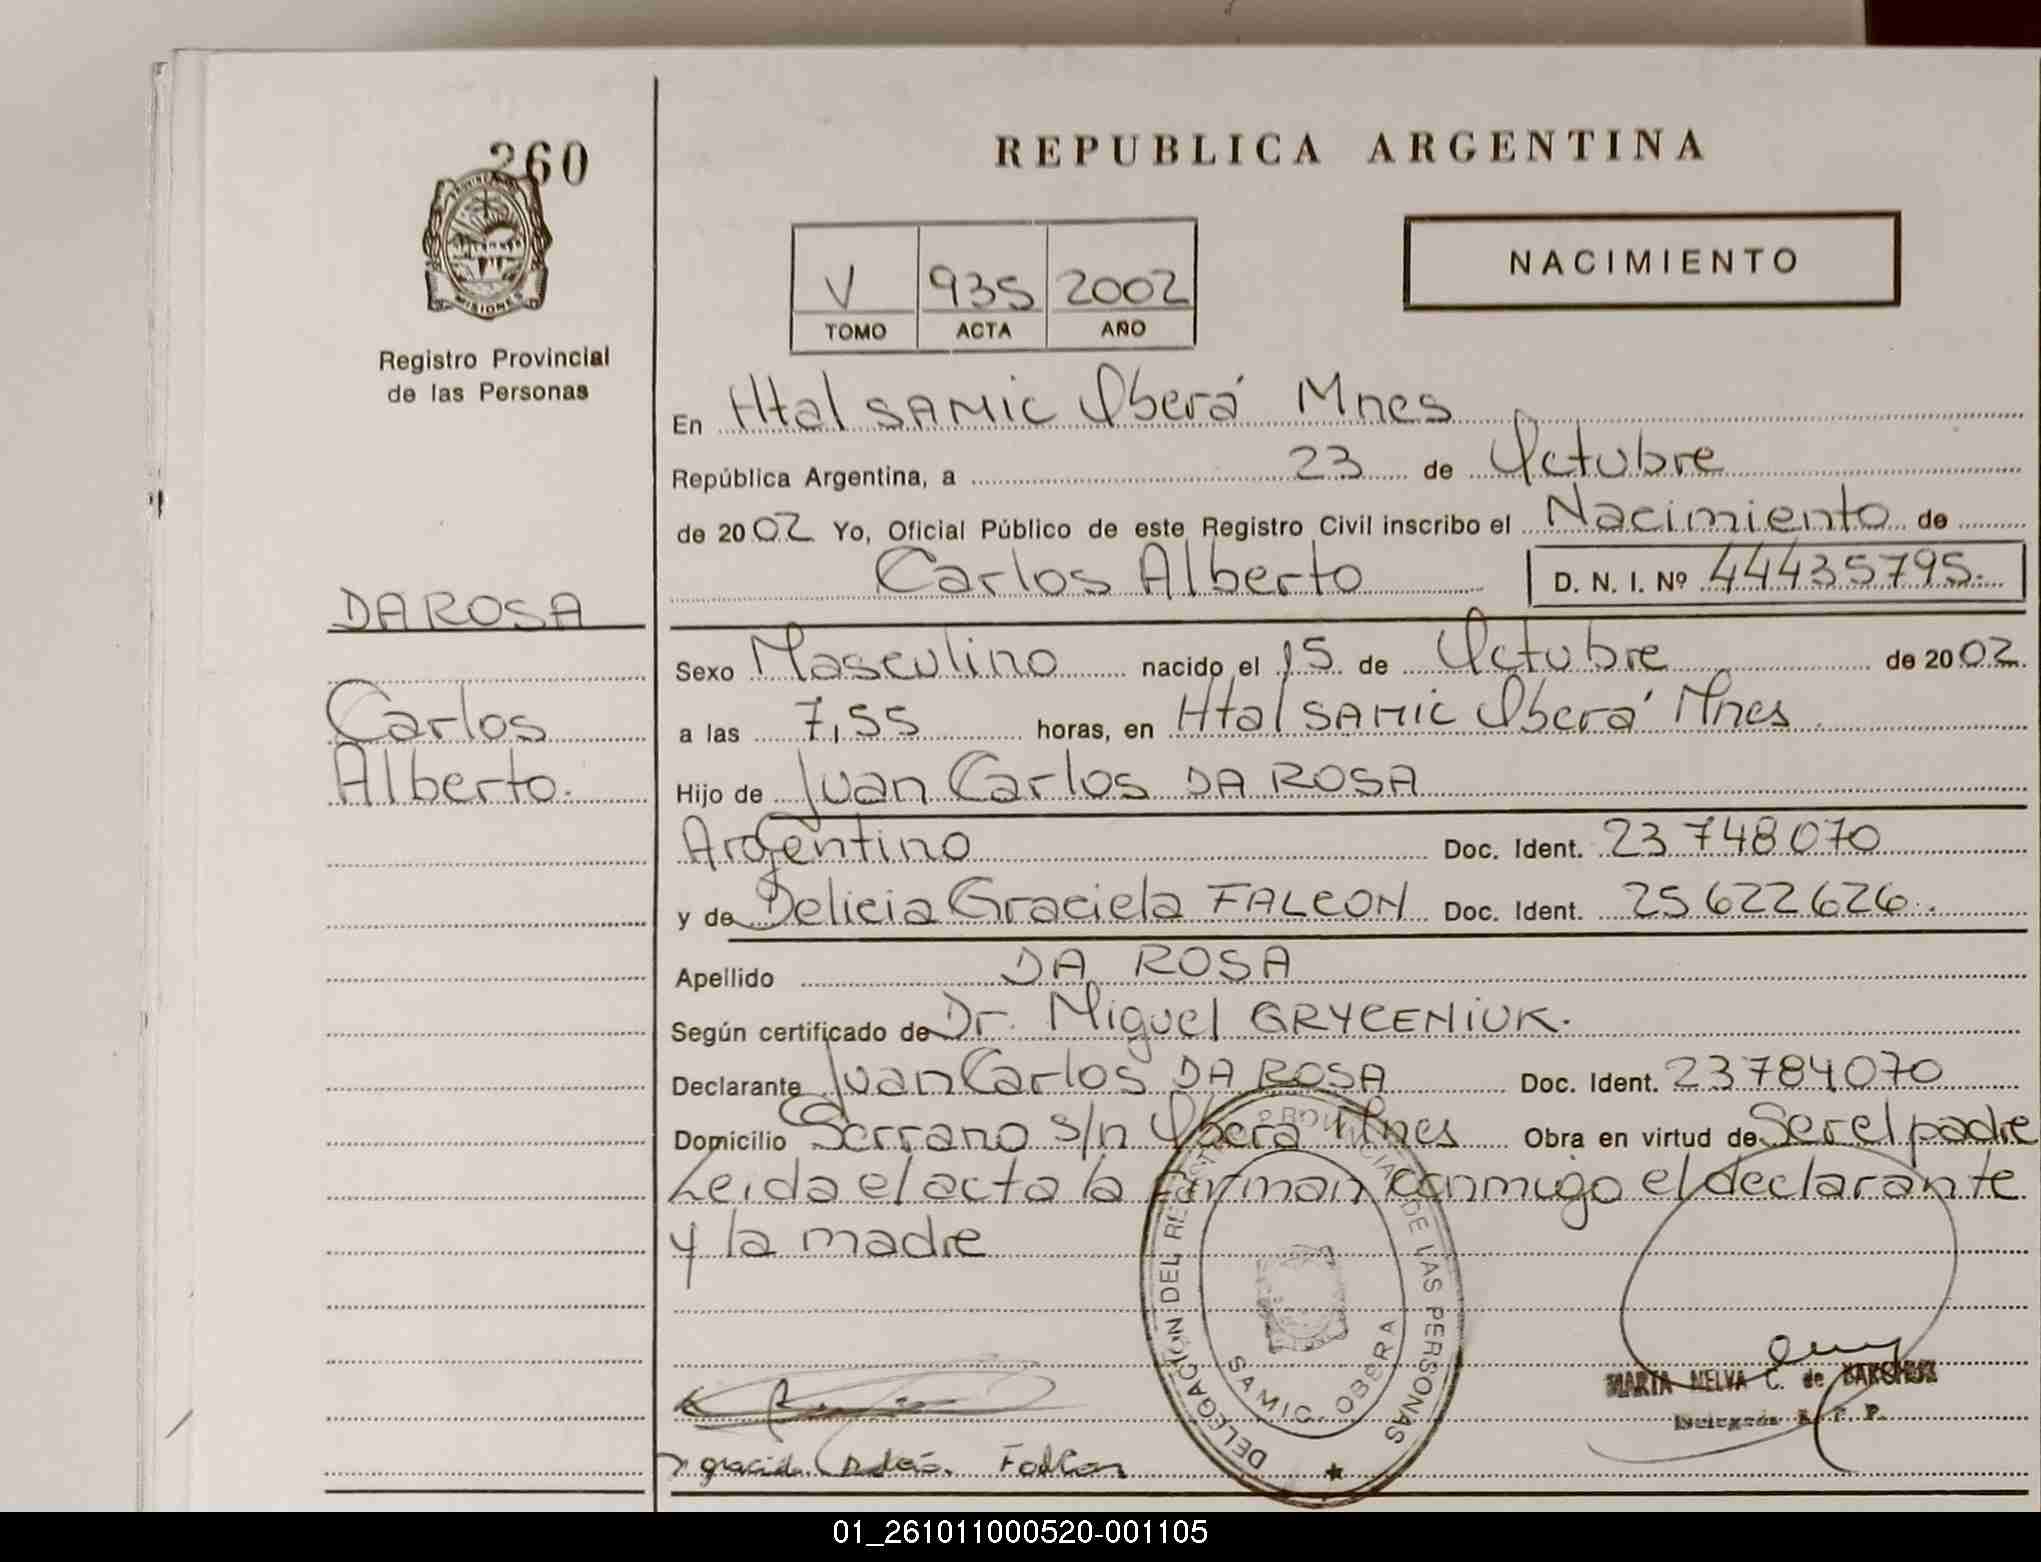 260
PROVINCIA DE
MISIONES
Registro Provincial
de las Personas
REPUBLICA ARGENTINA
V 935 2002
TOMO ACTA AÑO
NACIMIENTO
En Htal SAMIC Oberá Mnes
República Argentina, a 23 de Octubre
de 2002 Yo, Oficial Público de este Registro Civil inscribo el Nacimiento de
Carlos Alberto D. N. I. Nº 44435795.
DA ROSA
Carlos
Alberto.
Sexo Masculino nacido el 15 de Octubre de 2002.
a las 7,55 horas, en Htal SAMIC Oberá Mnes
Hijo de Juan Carlos DA ROSA
Argentino Doc. Ident. 23748070
y de Delicia Graciela FALCON Doc. Ident. 25622626.
Apellido DA ROSA
Según certificado de Dr. Miguel GRYCENIUK.
Declarante Juan Carlos DA ROSA Doc. Ident. 23784070
Domicilio Serrano s/n Oberá Mnes Obra en virtud de Ser el padre
Leida el acta la firman conmigo el declarante
y la madre
DELEGACION DEL REGISTRO PROVINCIAL DE LAS PERSONAS
SAMIC. OBERA
MARTA NELVA C. de
Delegada R. P. P.
Falcon
01_261011000520-001105